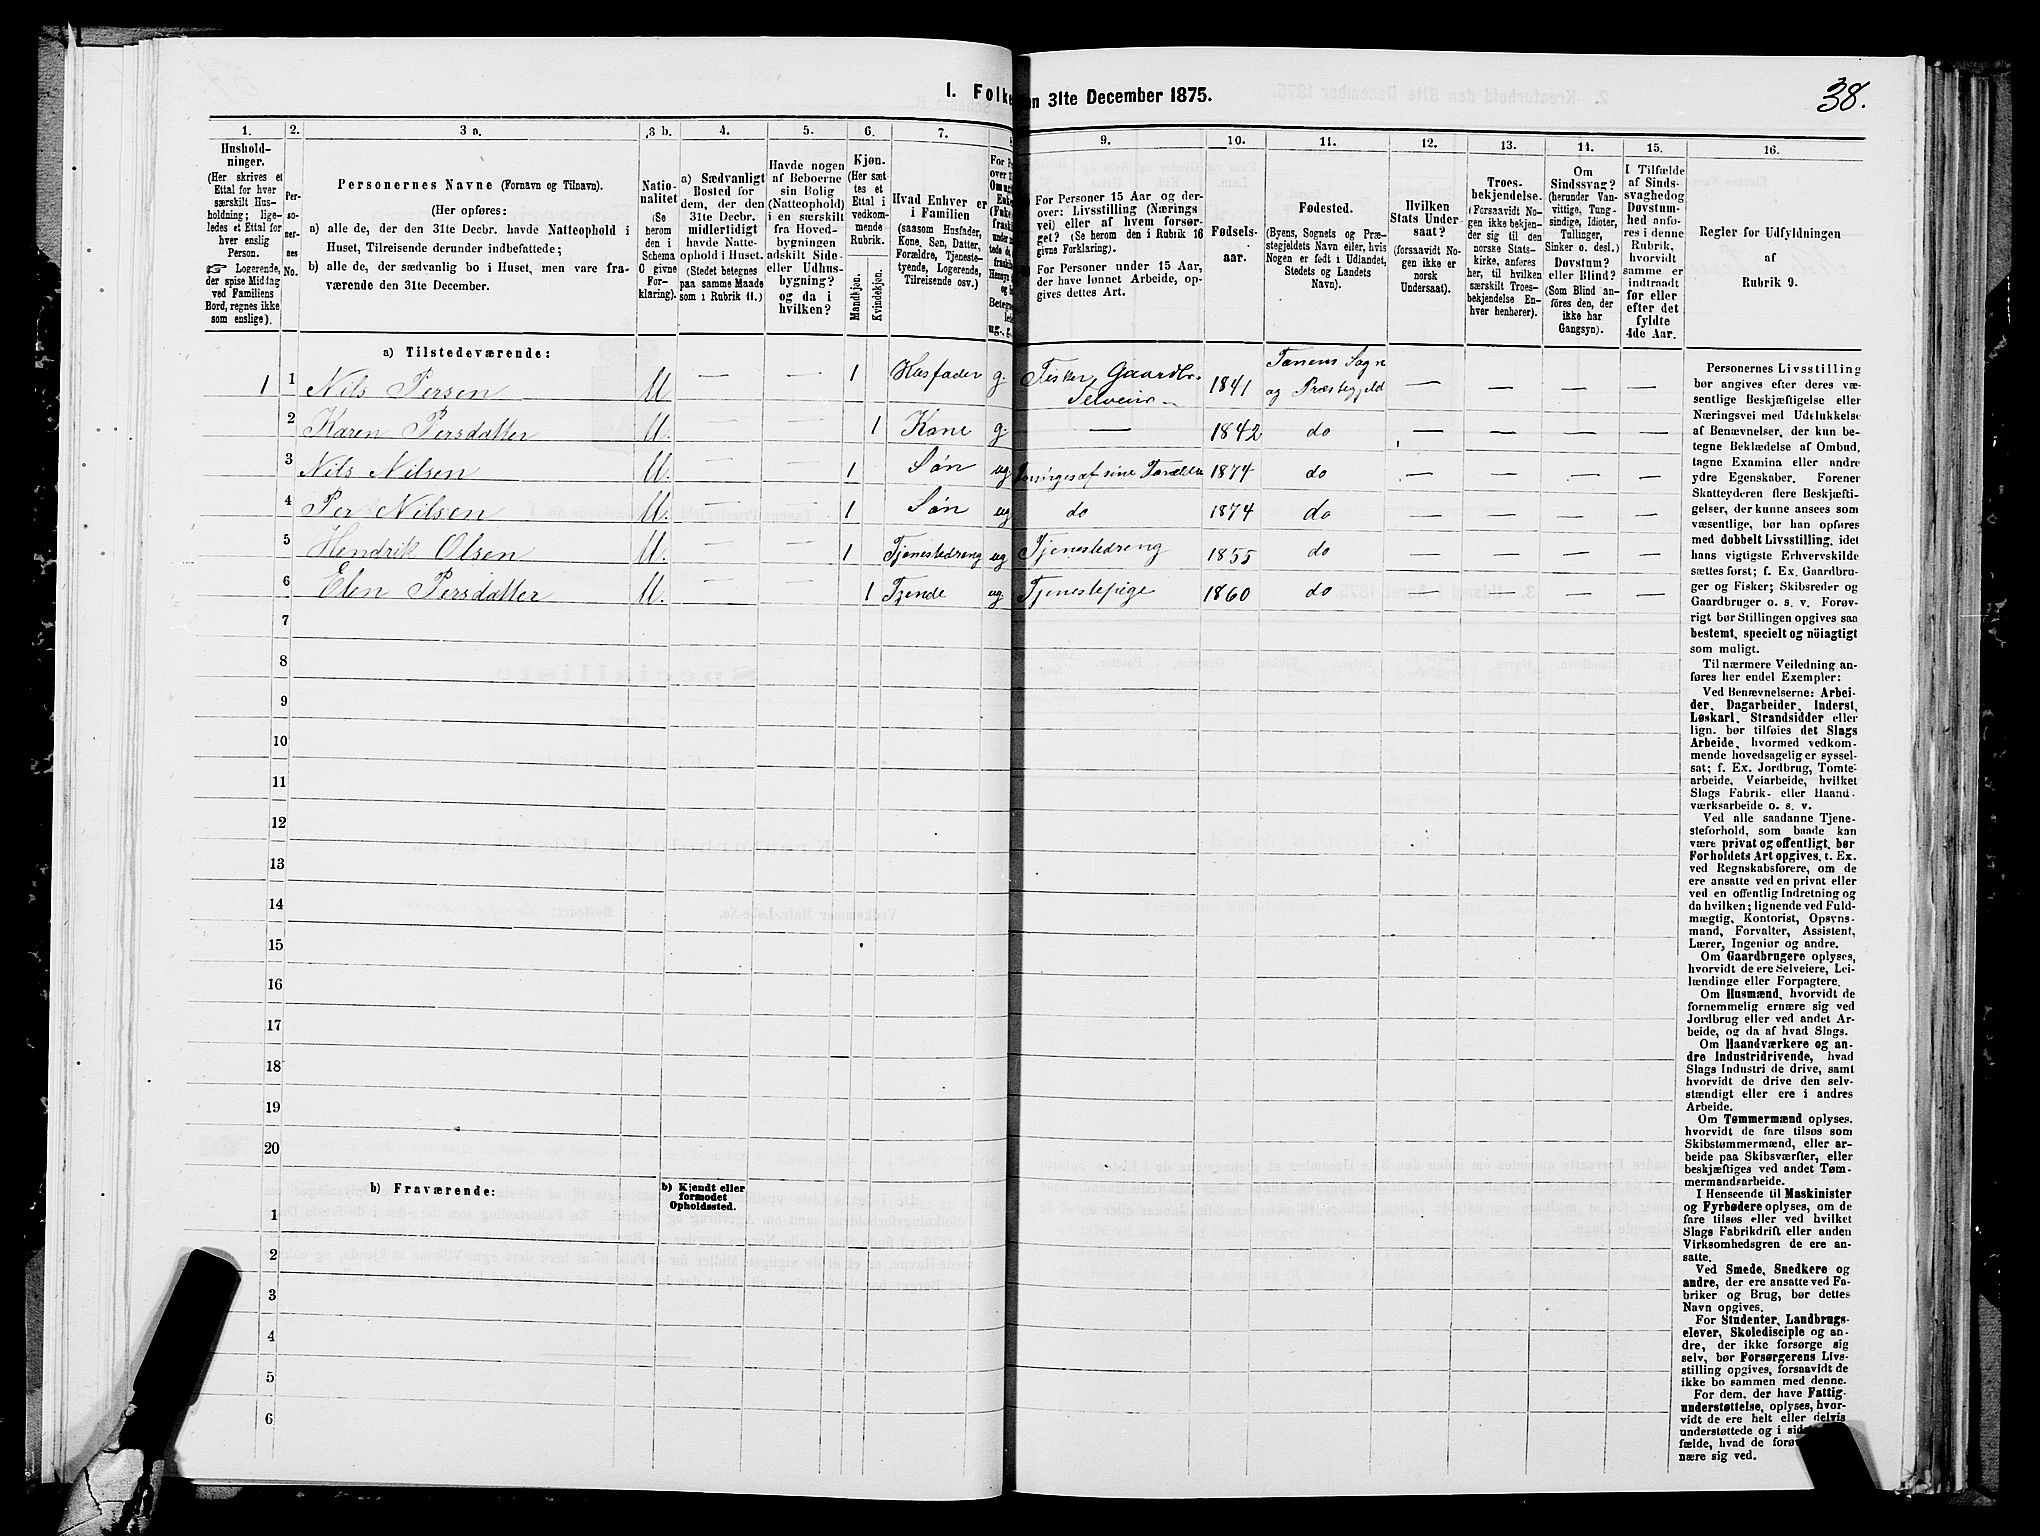 38.
I. Folke
en 31te December 1875.
1.
2.
3 a.
3 b.
4.
5.
6.
7.
9.
10.
11.
12.
13.
14.
15.
16.
Hushold-
ninger.
(Her skrives et
Ettal for hver
særskilt Hus-
holdning; lige-
ledes et Ettal for
hver enslig
Person.
☞ Logerende,
der spise Middag
ved Familiens
Bord, regnes ikke
som enslige).
Per-
so-
ner-
nes
No.
Personernes Navne (Fornavn og Tilnavn).
(Her opføres:
a) alle de, der den 31te Decbr. havde Natteophold i
Huset, Tilreisende derunder indbefattede;
b) alle de, der sædvanlig bo i Huset, men vare fra-
værende den 31te December.
Natio-
nalitet
(Se
herom
den i
Schema
G givne
For-
klaring).
a) Sædvanligt
Bosted for
dem, der den
31te Decbr.
midlertidigt
havde Natte-
ophold i Huset.
(Stedet betegnes
paa samme Maade
som i Rubrik 11.)
Havde nogen
af Beboerne
sin Bolig
(Natteophold)
i en særskilt
fra Hoved-
bygningen
adskilt Side-
eller Udhus-
bygning?
og da i
hvilken?
Kjøn.
(Her sæt
tes et
Ettal i
vedkom-
mende
Rubrik.
Mandkjøn.
Kvindekjøn.
Hvad Enhver er
i Familien
(saasom Husfader,
Kone, Søn, Datter,
Forældre, Tjeneste-
tyende, Logerende,
Tilreisende osv.)
For Personer 15 Aar og der-
over: Livsstilling (Nærings
vei) eller af hvem forsør-
get? (Se herom den i Rubrik 16
givne Forklaring).
For Personer under 15 Aar,
der have lønnet Arbeide, op-
gives dettes Art.
Fødsels-
aar.
Fødested.
(Byens, Sognets og Præ-
stegjeldets Navn eller, hvis
Nogen er født i Udlandet,
Stedets og Landets
Navn).
Hvilken
Stats Under-
saat?
(forsaavidt No-
gen ikke er
norsk
Undersaat).
Troes-
bekjendelse.
(Forsaavidt No-
gen ikke bekjen-
der sig til den
norske Stats-
kirke, anføres
her, til hvilken
særskilt Troes-
bekjendelse En-
hver henhører).
Om
Sindssvag?
(herunder Van-
vittige, Tung-
sindige, Idioter,
Tullinger,
Sinker o. desl.)
Døvstum?
eller Blind?
(Som Blind an-
føres den, der
ikke har
Gangsyn).
I Tilfælde
af Sinds-
svaghed og
Døvstum-
hed anfø-
res i denne
Rubrik,
hvorvidt
samme er
indtraadt
før eller
efter det
fyldte
4de Aar.
Regler for Udfyldningen
af
Rubrik 9.
a) Tilstedeværende:
1 1 Nils Persen M. — — 1 Husfader g. Fisker, Gaardbr. Selveier 1841 Tanens Sogn og Præstegjeld — — — —
2 Karen Persdatter M. — — 1 Kone g. — 1842 do — — — —
3 Nils Nilsen M. — — 1 Søn ug af sine Forældre 1874 do — — — —
4 Per Nilsen M. — — 1 Søn ug do 1874 do — — — —
5 Hendrik Olsen M. — — 1 Tjenestedreng ug Tjenestedreng 1855 do — — — —
6 Elen Persdatter M. — — 1 Tjende ug Tjenestepige 1860 do — — — —
7
8
9
10
11
12
13
14
15
16
17
18
19
20
b) Fraværende:
b) Kjendt eller
formodet
Opholdssted.
1
2
3
4
5
6
Personernes Livsstilling
bør angives efter deres væ-
sentlige Beskjæftigelse eller
Næringsvei med Udelukkelse
af Benævnelser, der kun be-
tegne Beklædelse af Ombud,
tagne Examina eller andre
ydre Egenskaber. Forener
Skatteyderen flere Beskjæfti-
gelser, der kunne ansees som
væsentlige, bør han opføres
med dobbelt Livsstilling, idet
hans vigtigste Erhvervskilde
sættes først; f. Ex. Gaardbru-
ger og Fisker; Skibsreder og
Gaardbruger o. s. v. Forøv-
rigt bør Stillingen opgives saa
bestemt, specielt og nöiagtigt
som muligt.
Til nærmere Veiledning an-
føres her endel Exempler:
Ved Benævnelserne: Arbei-
der, Dagarbeider, Inderst,
Løskarl, Strandsidder eller
lign. bør tilføies det Slags
Arbeide, hvormed vedkom-
mende hovedsagelig er syssel-
sat; f. Ex. Jordbrug, Tomte-
arbeide, Veiarbeide, hvilket
Slags Fabrik- eller Haand-
værksarbeide o. s. v.
Ved alle saadanne Tjene-
steforhold, som baade kan
være privat og offentligt, bør
Forholdets Art opgives, t. Ex.
ved Regnskabsførere, om de
ere ansatte ved en privat eller
ved en offentlig Indretning og
da hvilken; lignende ved Fuld-
mægtig, Kontorist, Opsyns-
mand, Forvalter, Assistent,
Lærer, Ingeniør og andre.
Om Gaardbrugere oplyses,
hvorvidt de ere Selveiere, Lei-
lændinge eller Forpagtere.
Om Husmænd, hvorvidt de
fornemmelig ernære sig ved
Jordbrug eller ved andet Ar-
beide, og da af hvad Slags.
Om Haandværkere og an-
dre Industridrivende, hvad
Slags Industri de drive, samt
hvorvidt de drive den selv-
stændigt eller ere i andres
Arbeide.
Om Tømmermænd oplyses,
hvorvidt de fare tilsøs som
Skibstømmermænd, eller ar-
beide paa Skibsværfter, eller
beskjæftiges ved andet Tøm-
mermandsarbeide.
I Henseende til Maskinister
og Fyrbødere oplyses, om de
fare tilsøs eller ved hvilket
Slags Fabrikdrift eller anden
Virksomhedsgren de ere an-
satte.
Ved Smede, Snedkere og
andre, der ere ansatte ved Fa-
briker og Brug, bør dettes
Navn opgives.
For Studenter, Landbrugs-
elever, Skoledisciple og an-
dre, der ikke forsørge sig
selv, bør Forsørgerens Livs-
stilling opgives, forsaavidt de
ikke bo sammen med denne.
For dem, der have Fattig-
understøttelse, oplyses, hvor-
vidt de ere helt eller delvis
understøttede og i
fælde, hvad de
nære sig ved.